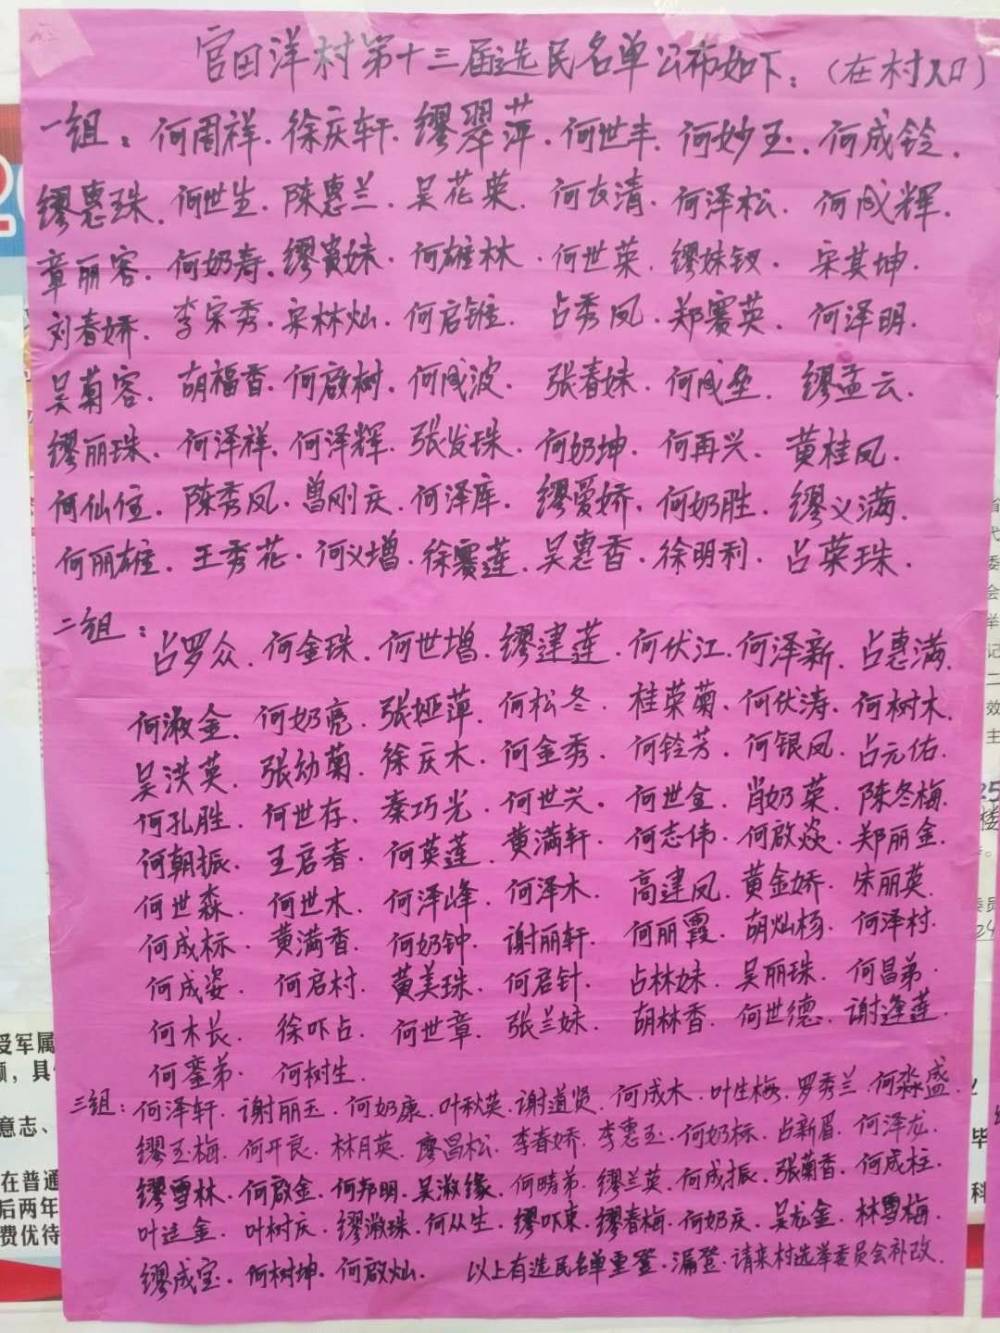 官田洋村第十三届选民名单公布如下：（在村人口）
一组：何周祥．徐庆轩．缪翠萍．何世丰．何妙玉．何成铃．
缪惠珠．何世生．陈惠兰．吴花菜．何友清．何泽松．何成辉．
章丽容．何奶寿．缪贵妹．何雄林．何世荣．缪妹钗．宋其坤．
刘春娇．李宗秀．宋林灿．何启锥．占秀凤．郑赛英．何泽明．
吴菊容．胡福香．何啟树．何成波．张春妹．何成垒．缪孟云．
缪丽珠．何泽祥．何泽辉．张发珠．何奶坤．何再兴．黄桂凤．
何仙俭．陈秀凤．曾刚庆．何泽库．缪爱娇．何奶胜．缪义满．
何丽雄．王秀花．何义增．徐赛莲．吴惠香．徐明利．占英珠．
二组：占罗众．何金珠．何世增．缪建莲．何伏江．何泽新．占惠满．
何淑金．何奶亮．张娅萍．何松冬．桂荣菊．何伏涛．何树木．
吴洪英．张幼菊．徐庆木．何金秀．何铃芳．何银凤．占元佑．
何孔胜．何世存．秦巧光．何世兴．何世金．肖奶菜．陈冬梅．
何朝振．王启春．何英莲．黄满轩．何志伟．何啟焱．郑丽金．
何世森．何世木．何泽峰．何泽木．高建凤．黄金娇．宋丽英．
何成标．黄满香．何奶钟．谢丽轩．何丽霞．胡灿杨．何泽村．
何成姿．何启村．黄美珠．何启针．占林妹．吴丽珠．何昌弟．
何木长．徐吓占．何世章．张兰妹．胡林香．何世德．谢逢莲．
何銮弟．何树生．
三组：何泽轩．谢丽玉．何奶康．叶秋英．谢道贤．何成木．叶生梅．罗秀兰．何淼盛
缪玉梅．何开良．林月英．廖昌松．李春娇．李惠玉．何奶标．占新眉．何泽龙．
缪雪林．何啟金．何邦明．吴淑缘．何晴弟．缪兰英．何成振．张菊香．何成柱．
叶金．叶树庆．缪淑珠．何从生．缪吓束．缪春梅．何奶庆．吴龙金．林雪梅．
缪成宝．何树坤．何啟灿．以上有选民名单重登．漏登．请来村选举委员会补改．
受军属
意志、
在普通
后两年
费优待